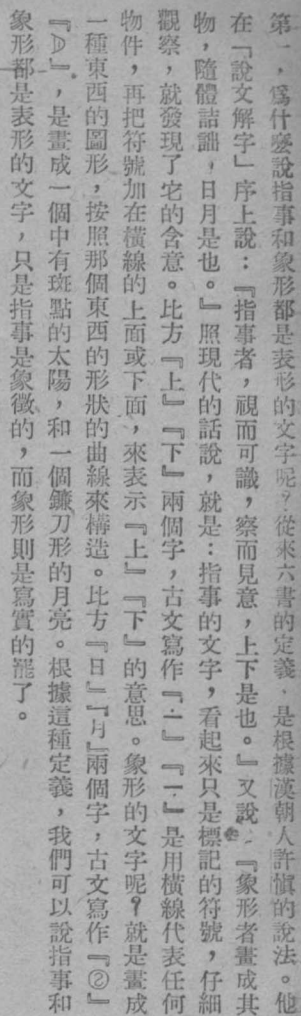 第一，爲什麽說指事和象形都是表形的文字呢？從來六書的定義，是根據漢朝人許愼的說法。他
在「說文解字」序上說：『指事者，視而可識，察而見意，上下是也。』又說：『象形者畫成其
物，隨體詰詘，日月是也。』照現代的話說，就是：指事的文字，看起來只是標記的符號，仔細
觀察，就發現了它的含意。比方『上』『下』兩個字，古文寫作『』『』是用橫線代表任何
物件，再把符號加在橫線的上面或下面，來表示『上』『下』的意思。象形的文字呢？就是畫成
一種東西的圖形，按照那個東西的形狀的曲線來構造。比方『日』『月』兩個字，古文寫作『②』
『D』，是畫成一個中有斑點的太陽，和一個鐮刀形的月亮。根據這種定義，我們可以說指事和
象形都是表形的文字，只是指事是象徵的，而象形則是寫實的罷了。